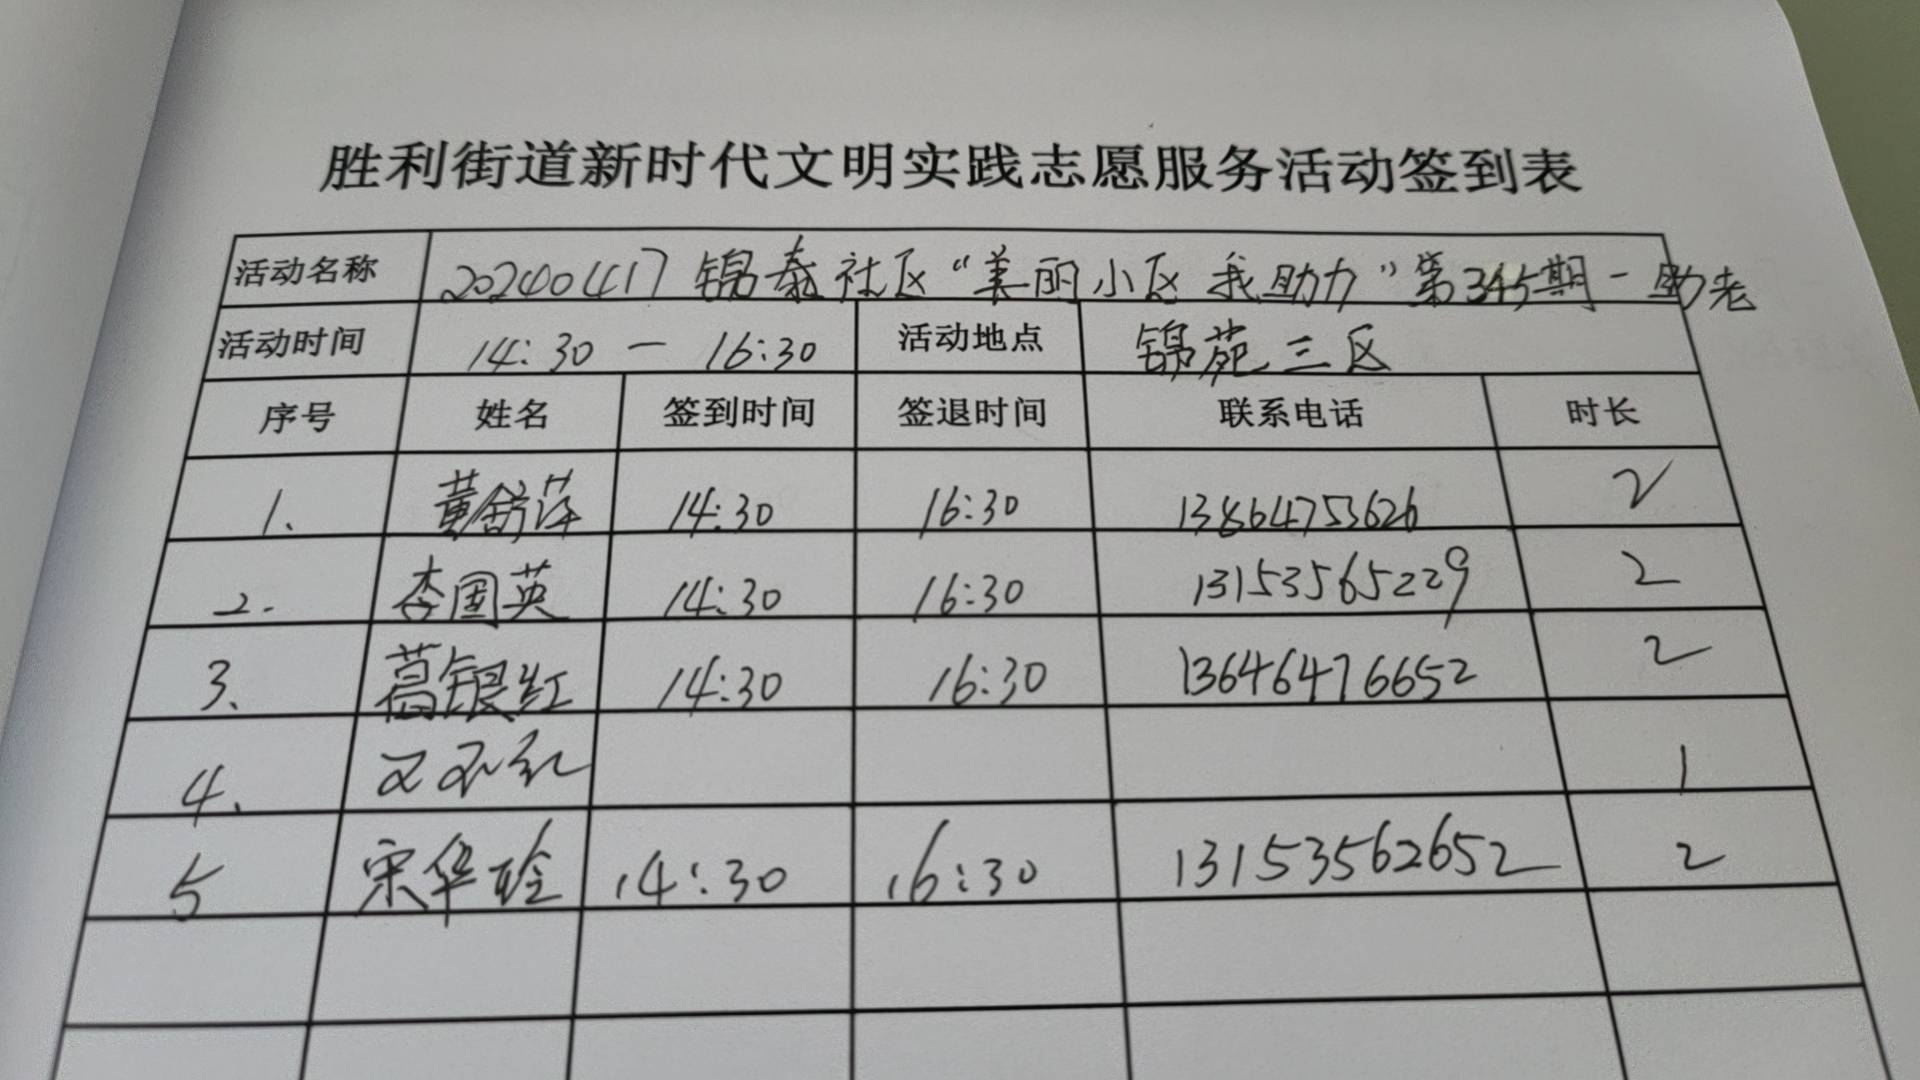 胜利街道新时代文明实践志愿服务活动签到表
活动名称 20240417 锦泰社区“美丽小区 我助力”第345期-助老
活动时间 14:30 — 16:30 活动地点 锦苑三区
序号 姓名 签到时间 签退时间 联系电话 时长
1. 黄舒萍 14:30 16:30 13864753626 2
2. 李国英 14:30 16:30 13153565229 2
3. 葛银红 14:30 16:30 13646476652 2
4. 1
5 宋华玲 14:30 16:30 13153562652 2